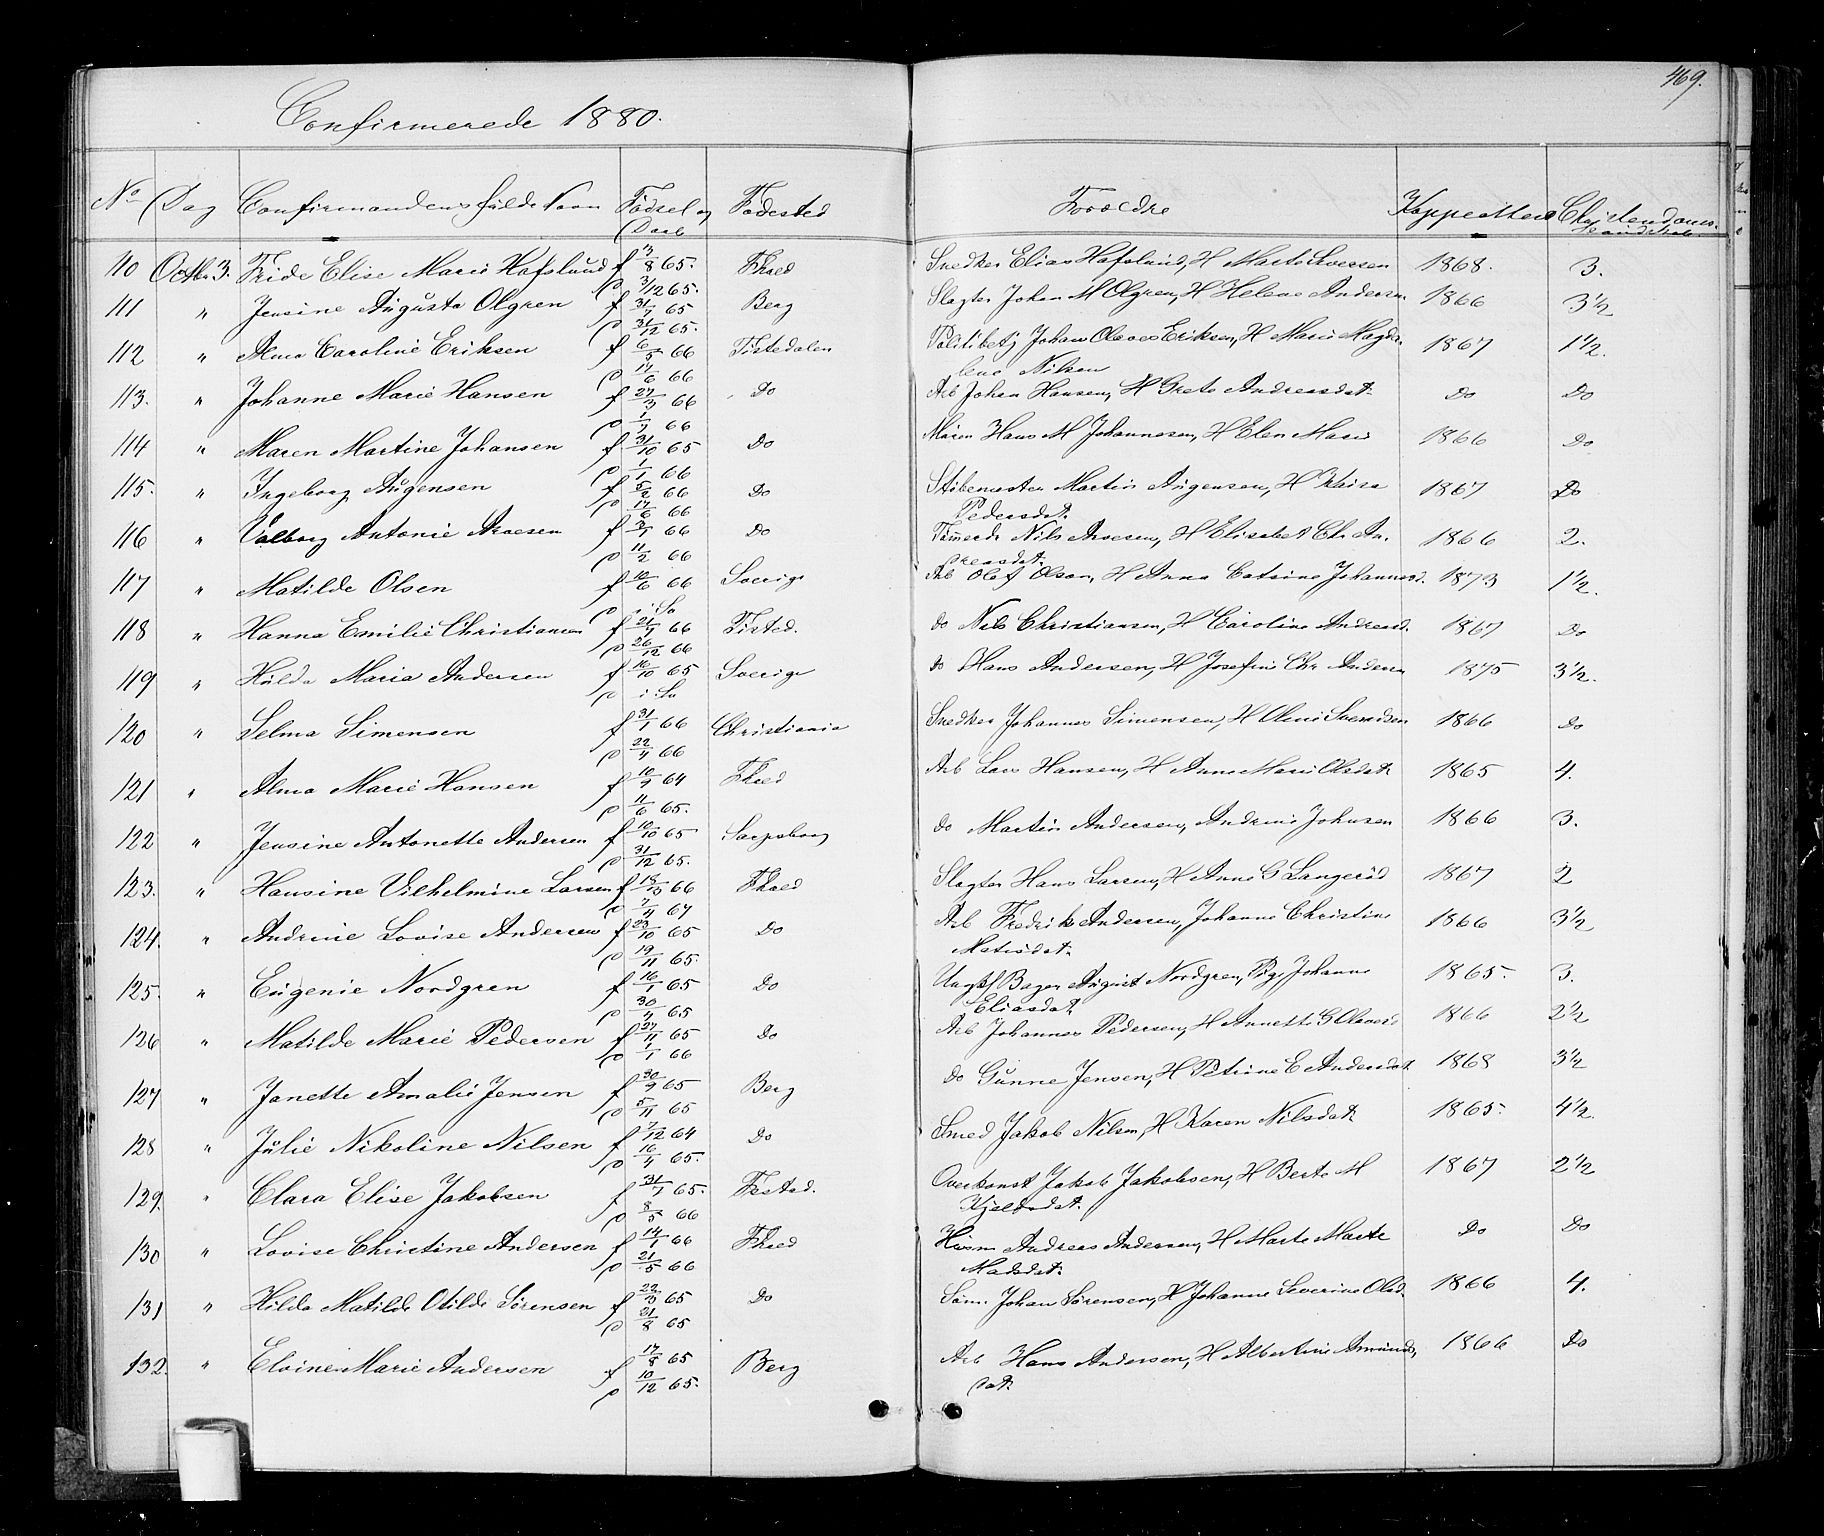 469.
Confirmerede 1880.
No Dag Confirmandens fulde Navn Fødsel og Daab Fødested Forældre Koppeattest Christendoms- kundskab
110 Octbr. 3. Fride Elise Marie Hafslund f 13/8 65. Fhald Snedker Elias Hafslund, H Marte Iversen 1868. 3.
D 3/12 65.
111 " Jensine Augusta Olgren f 31/7 65 Berg Slagter Johan M Olgren, H Helene Andersen 1866 3 1/2
D 31/12 65.
112 " Alma Caroline Eriksen f 6/3 66 Tistedalen Politibetj Johan Olaves Eriksen, H Marie Magda-
D 17/6 66 lene Nilsen 1867 1 1/2.
113. " Johanne Marie Hansen f 27/3 66 Do Arb Johan Hansen, H Grete Andreasdat. Do Do
D 1/7 66
114 " Maren Martine Johansen f 31/10 65 Do Murer Hans M Johannesen, H Elen Marie 1866 Do
D 1/1 66
115. " Ingeborg Augensen f 5/2 66 Do Stubemester Martin Augensen, H Kaisa 1867 Do
D 17/6 66 Pedersdat.
116 " Valborg Antonie Aroesen f 3/1 66 Do Tømmerh Nils Aroesen, H Elisabet Chr An- 1866 2.
D 11/2 66 dreasdat.
117 " Matilde Olsen f 10/6 66 Sverige Arb Olof Olson, H Anna Catrine Johannesd. 1873 1 1/2.
D i So
118 " Hanna Emilie Christiansen f 21/9 66 Tisted. Do Nils Christiansen, H Caroline Andreasd. 1867 Do
D 26/12 66
119 " Hulda Maria Andersen f 16/10 65 Sverige Do Hans Andersen, H Josefine Chr Andersen 1875 3 1/2.
D i So
120 " Selma Simensen f 31/1 66 Christiania Snedker Johannes Simensen, H Oleni Svendsen 1866 Do
D 22/4 66
121 " Alma Marie Hansen f 10/9 64 Fhald Arb Lars Hansen, H Anne Marie Olsdat 1865 4.
D 11/6 65.
122 " Jensine Antonette Andersen f 10/10 65 Sarpsborg Do Martin Andersen, Andrine Johnsen 1866 3.
D 31/12 65.
123. " Hansine Vilhelmine Larsen f 18/3 66 Fhald Slagter Hans Larsen, H Anne G Langerød 1867 2
D 7/4 67
124. " Andrine Lovise Andersen f 23/10 65 Do Arb Fredrik Andersen, Johanne Christine 1866 3 1/2
D 19/11 65. Matisdat.
125. " Eugenie Nordgren f 16/1 65 Do Ungkf Bager August Nordgren, Pige Johanne 1865. 3.
D 30/4 65 Eliasdat
126 " Matilde Marie Pedersen f 27/11 65 Do Arb Johannes Pedersen, H Annette G Olavesd 1866 2 1/2
D 1/1 66
127 " Janette Amalie Jensen f 30/9 65 Berg Do Gunne Jensen, H Petrine E Andersdat. 1868 3 1/2
D 5/11 65
128 " Julie Nikoline Nilsen f 7/12 64 Do Smed Jakob Nilsen, H Karen Nilsdat 1865. 4 1/2.
D 16/4 65.
129. " Clara Elise Jakobsen f 31/7 65. Frstad. Overkonst Jakob Jakobsen, H Berte M 1867 2 1/2
D 8/5 66 Kjeldsdat.
130 " Lovise Christine Andersen f 14/1 66 Fhald Husm Andreas Andersen, H Marte Marte Do Do
D 21/5 66 Madsdat.
131 " Hilda Matilde Otilde Sørensen f 22/3 65 Do Søm. Johan Sørensen, H Johanne Severine Olsd. 1866 4.
D 21/8 65
132. " Elvine Marie Andersen f 17/8 65 Berg Arb Hans Andersen, H Albertine Amunds- 1866 Do
D 10/12 65. dat.